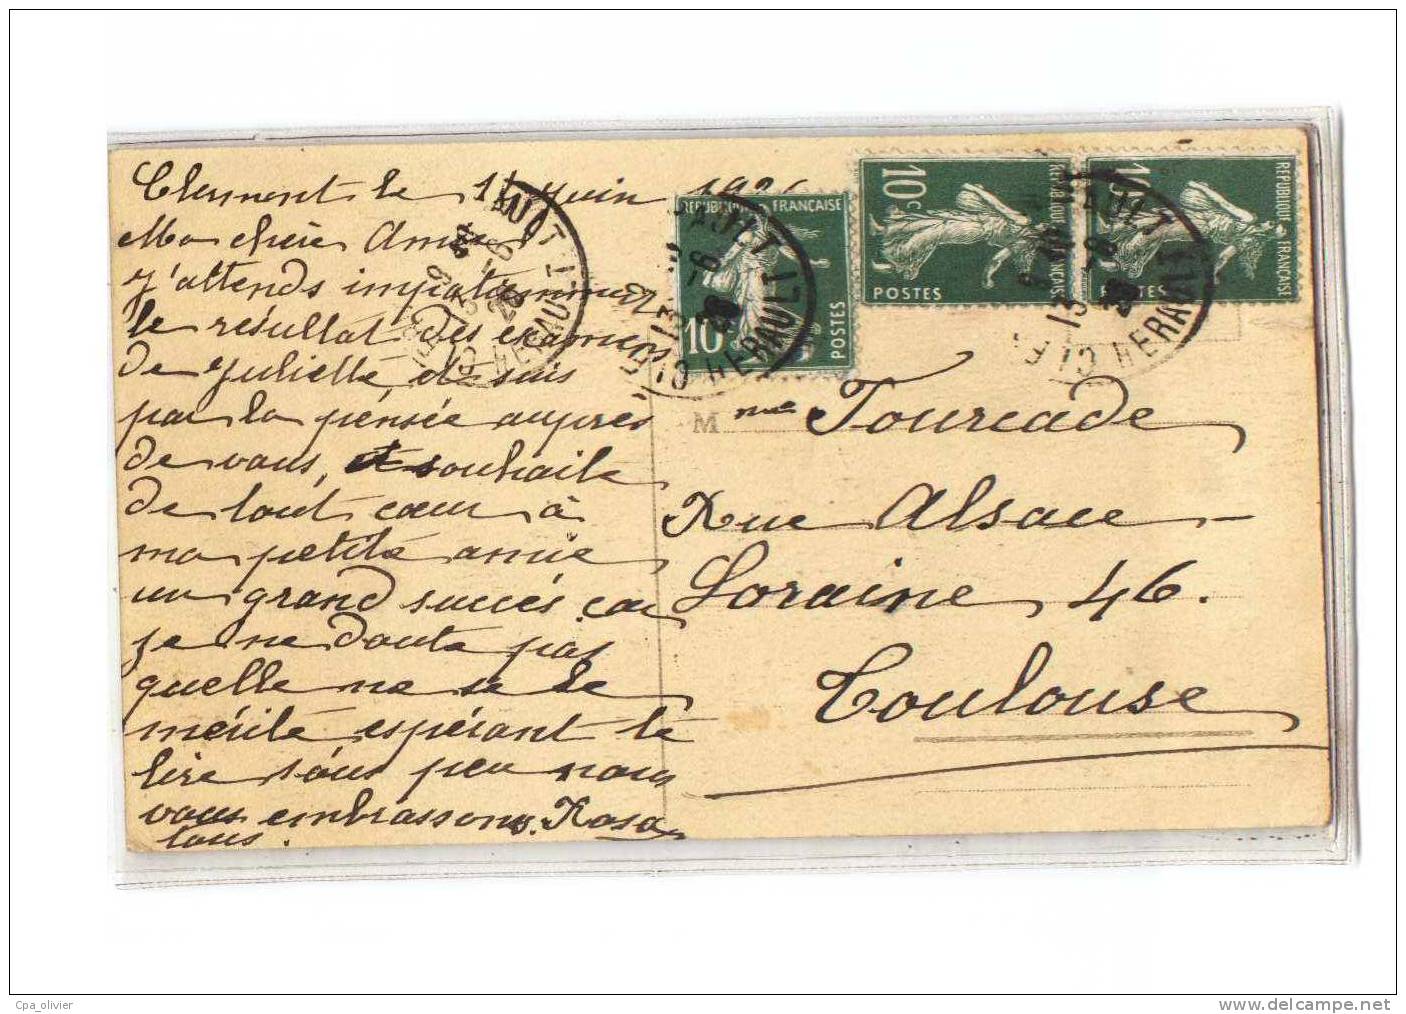 Clermont le 11 Juin 1926
Ma chère Amie
j'attends impatiemment
le résultat des examens
de Juliette et suis
par la pensée auprès
de vous, et souhaite
de tout cœur à
ma petite amie
un grand succés car
je ne doute pas
quelle ne se le
mérite espérant le
lire sous peu nous
vous embrassons. Rosa
tous.
REPUBLIQUE FRANÇAISE
10c
POSTES
10c
REPUBLIQUE FRANÇAISE
POSTES
REPUBLIQUE FRANÇAISE
POSTES
HERAULT
13 -6
26
Mme Fourcade
Rue Alsace
Loraine 46.
Toulouse
Cpa_olivier
www.delcampe.net